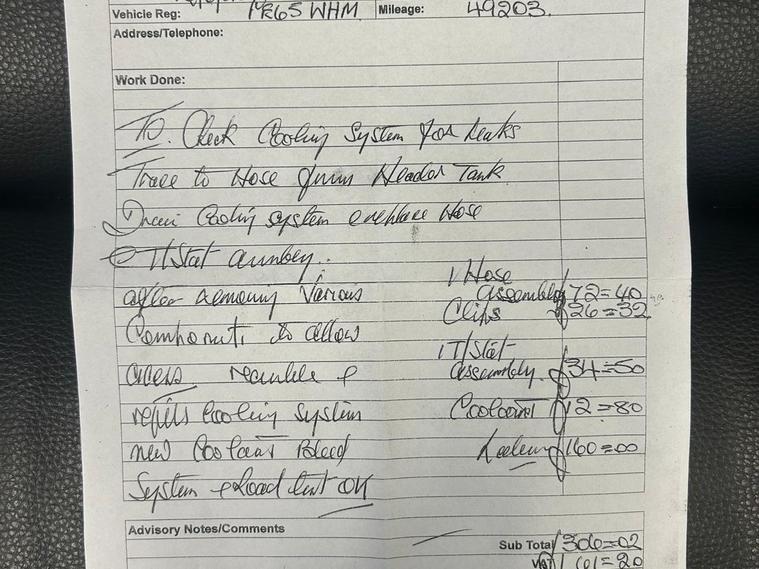 Vehicle Reg: Mileage: 49203.
Address/Telephone:
Work Done:
To. Check Cooling System for Leaks
Trace to Hose from Header Tank
Drain Cooling system & replace Hose
& T/Stat
1 Hose
after removing Various Assembly £72=40
Clips £26=32
Components to allow
1 T/Stat
access & Assembly. £34=50
refill Cooling System Coolant £12=80
new Coolant Bleed £160=00
System & Road test OK
Advisory Notes/Comments
Sub Total £306=02
VAT £61=20